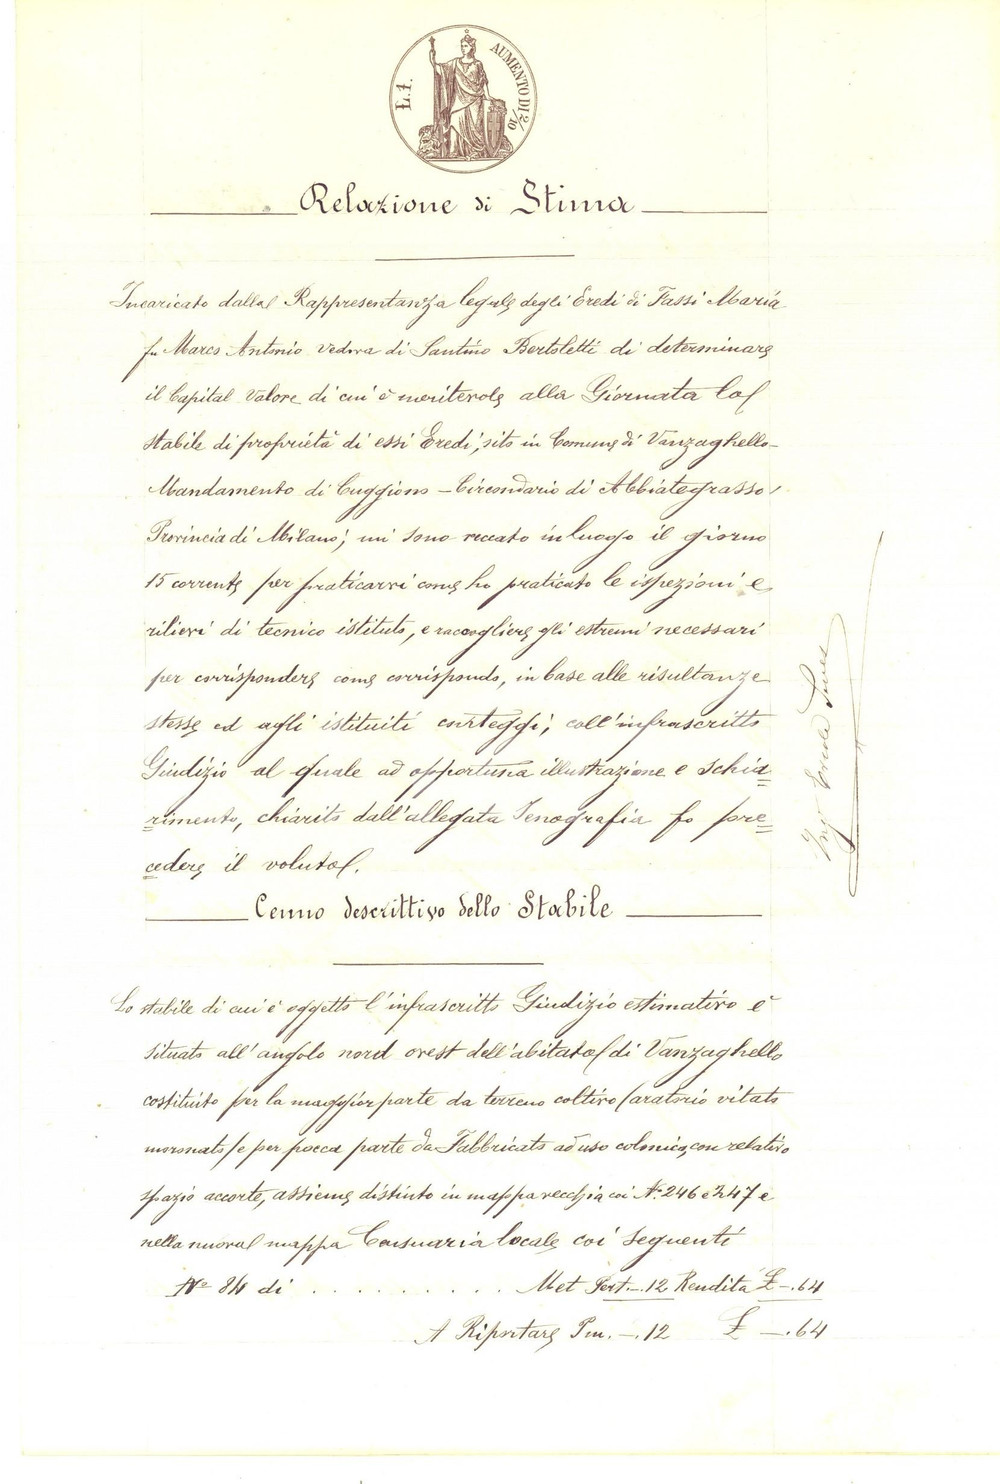 L. 1.
AUMENTO DI 2/10
Relazione di Stima
Incaricato dalla Rappresentanza legale degli Eredi di Fassi Maria
fu Marco Antonio vedova di Santino Bertoletti di determinare
il Capital Valore di cui è meritevole alla Giornata lo
stabile di proprietà di essi Eredi, sito in Comune di Vanzaghello
Mandamento di Cuggiono - Circondario di Abbiategrasso,
Provincia di Milano; mi sono reccato in luogo il giorno
15 corrente per praticarvi come ho praticato le ispezioni e
rilievi di tecnico istituto, e raccogliere gli estremi necessari
per corrispondere come corrispondo, in base alle risultanze
stesse ed agli istituiti conteggi, coll'infrascritto
Giudizio al quale ad opportuna illustrazione e schia=
=rimento, chiarito dall'allegata Icnografia fo pre=
=cedere il voluto.
Ing.r Ercole
Cenno descrittivo dello Stabile
Lo stabile di cui è oggetto l'infrascritto Giudizio estimativo è
situato all'angolo nord ovest dell'abitato di Vanzaghello
costituito per la maggior parte da terreno coltivo (aratorio vitato
moronato) e per pocca parte da Fabbricato ad uso colonico, con relativo
spazio accorte, assieme distinto in mappa vecchia coi N.i 246 e 247 e
nella nuova mappa Censuaria locale coi seguenti
N.o 84 di . . . . . . . . . Met Pert. -.12 Rendita £ -.64
A Riportare Pm. -.12 £ -.64